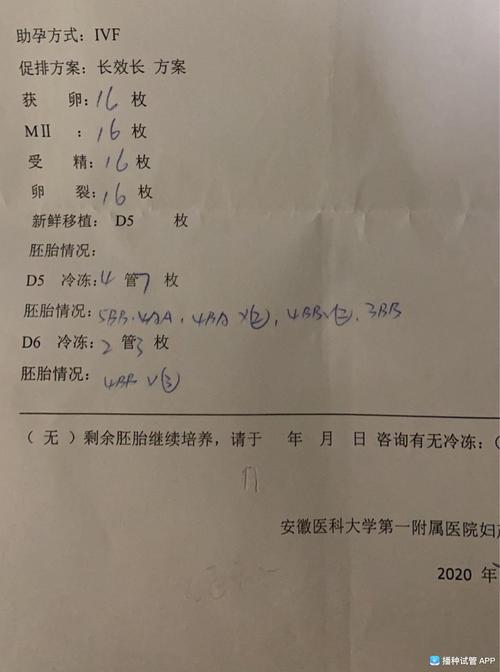 助孕方式：IVF
促排方案：长效长 方案
获 卵：16 枚
MⅡ ：16 枚
受 精：16 枚
卵 裂：16 枚
新鲜移植： D5 枚
胚胎情况：
D5 冷冻：4 管 7 枚
胚胎情况：5BB. 4AA. 4BA ×②, 4BB×②. 3BB
D6 冷冻：2 管 3 枚
胚胎情况：4BB ×③
（ 无 ）剩余胚胎继续培养，请于 年 月 日 咨询有无冷冻：（
安徽医科大学第一附属医院妇
2020 年
播种试管 APP